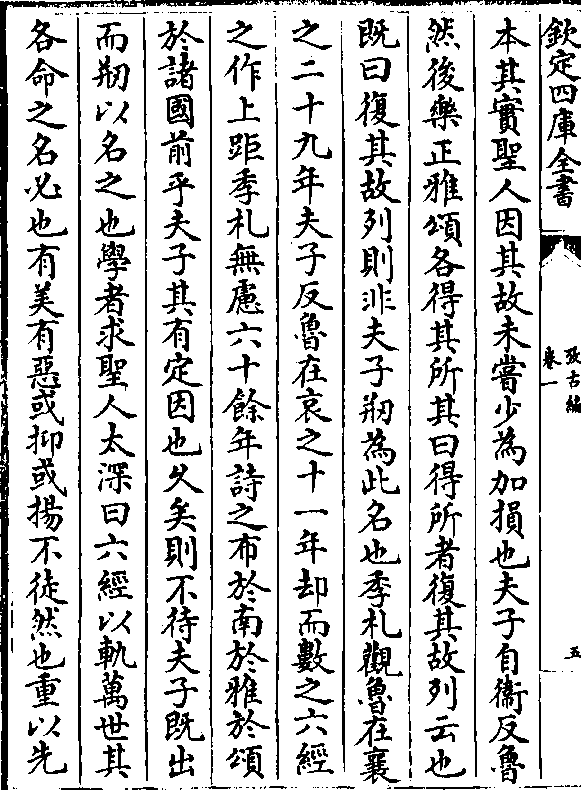 欽定四庫全書
攷古編
卷一
五
本其實聖人因其故未嘗少為加損也夫子自衞反魯
然後樂正雅頌各得其所其曰得所者復其故列云也
既曰復其故列則非夫子剏為此名也季札觀魯在襄
之二十九年夫子反魯在哀之十一年却而數之六經
之作上距季札無慮六十餘年詩之布於南於雅於頌
於諸國前乎夫子其有定因也久矣則不待夫子既出
而剏以名之也學者求聖人太深曰六經以軌萬世其
各命之名必也有美有惡或抑或揚不徒然也重以先